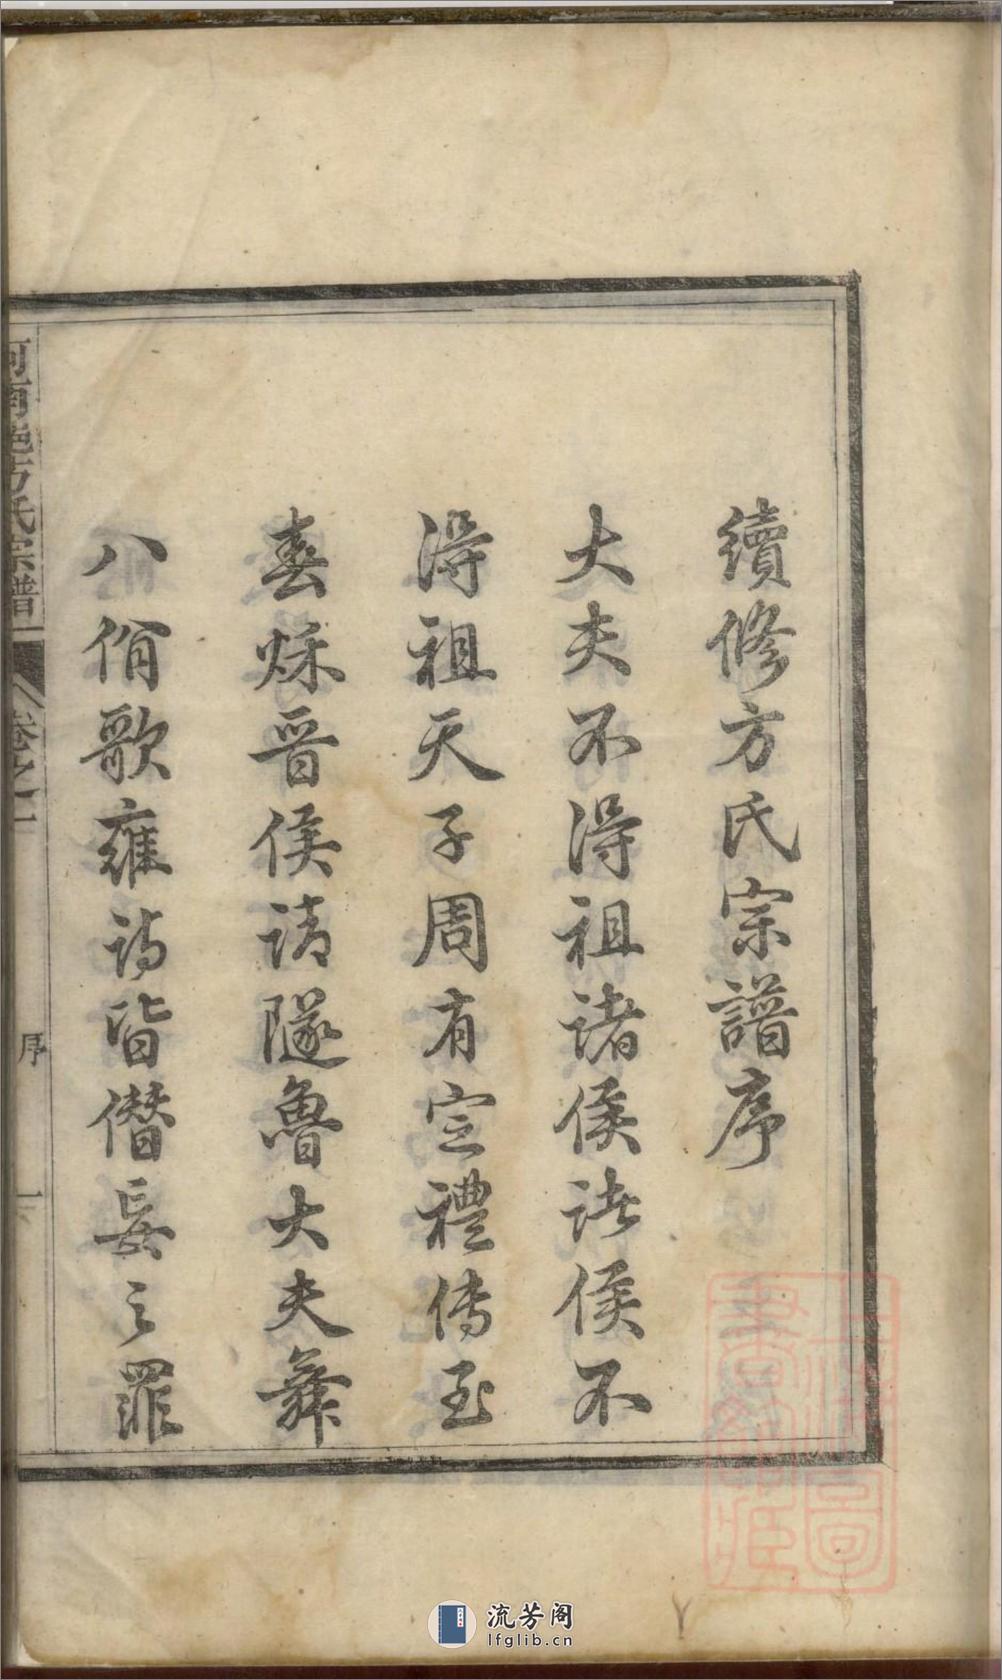 續修方氏宗譜序
大夫不得祖諸侯諸侯不
得祖天子周有定禮傳至
春秋晉侯請隧魯大夫舞
八佾歌雍詩皆僭妄之罪
方氏宗譜
卷之一
序
一
上海圖書館藏
流芳阁
lfglib.cn